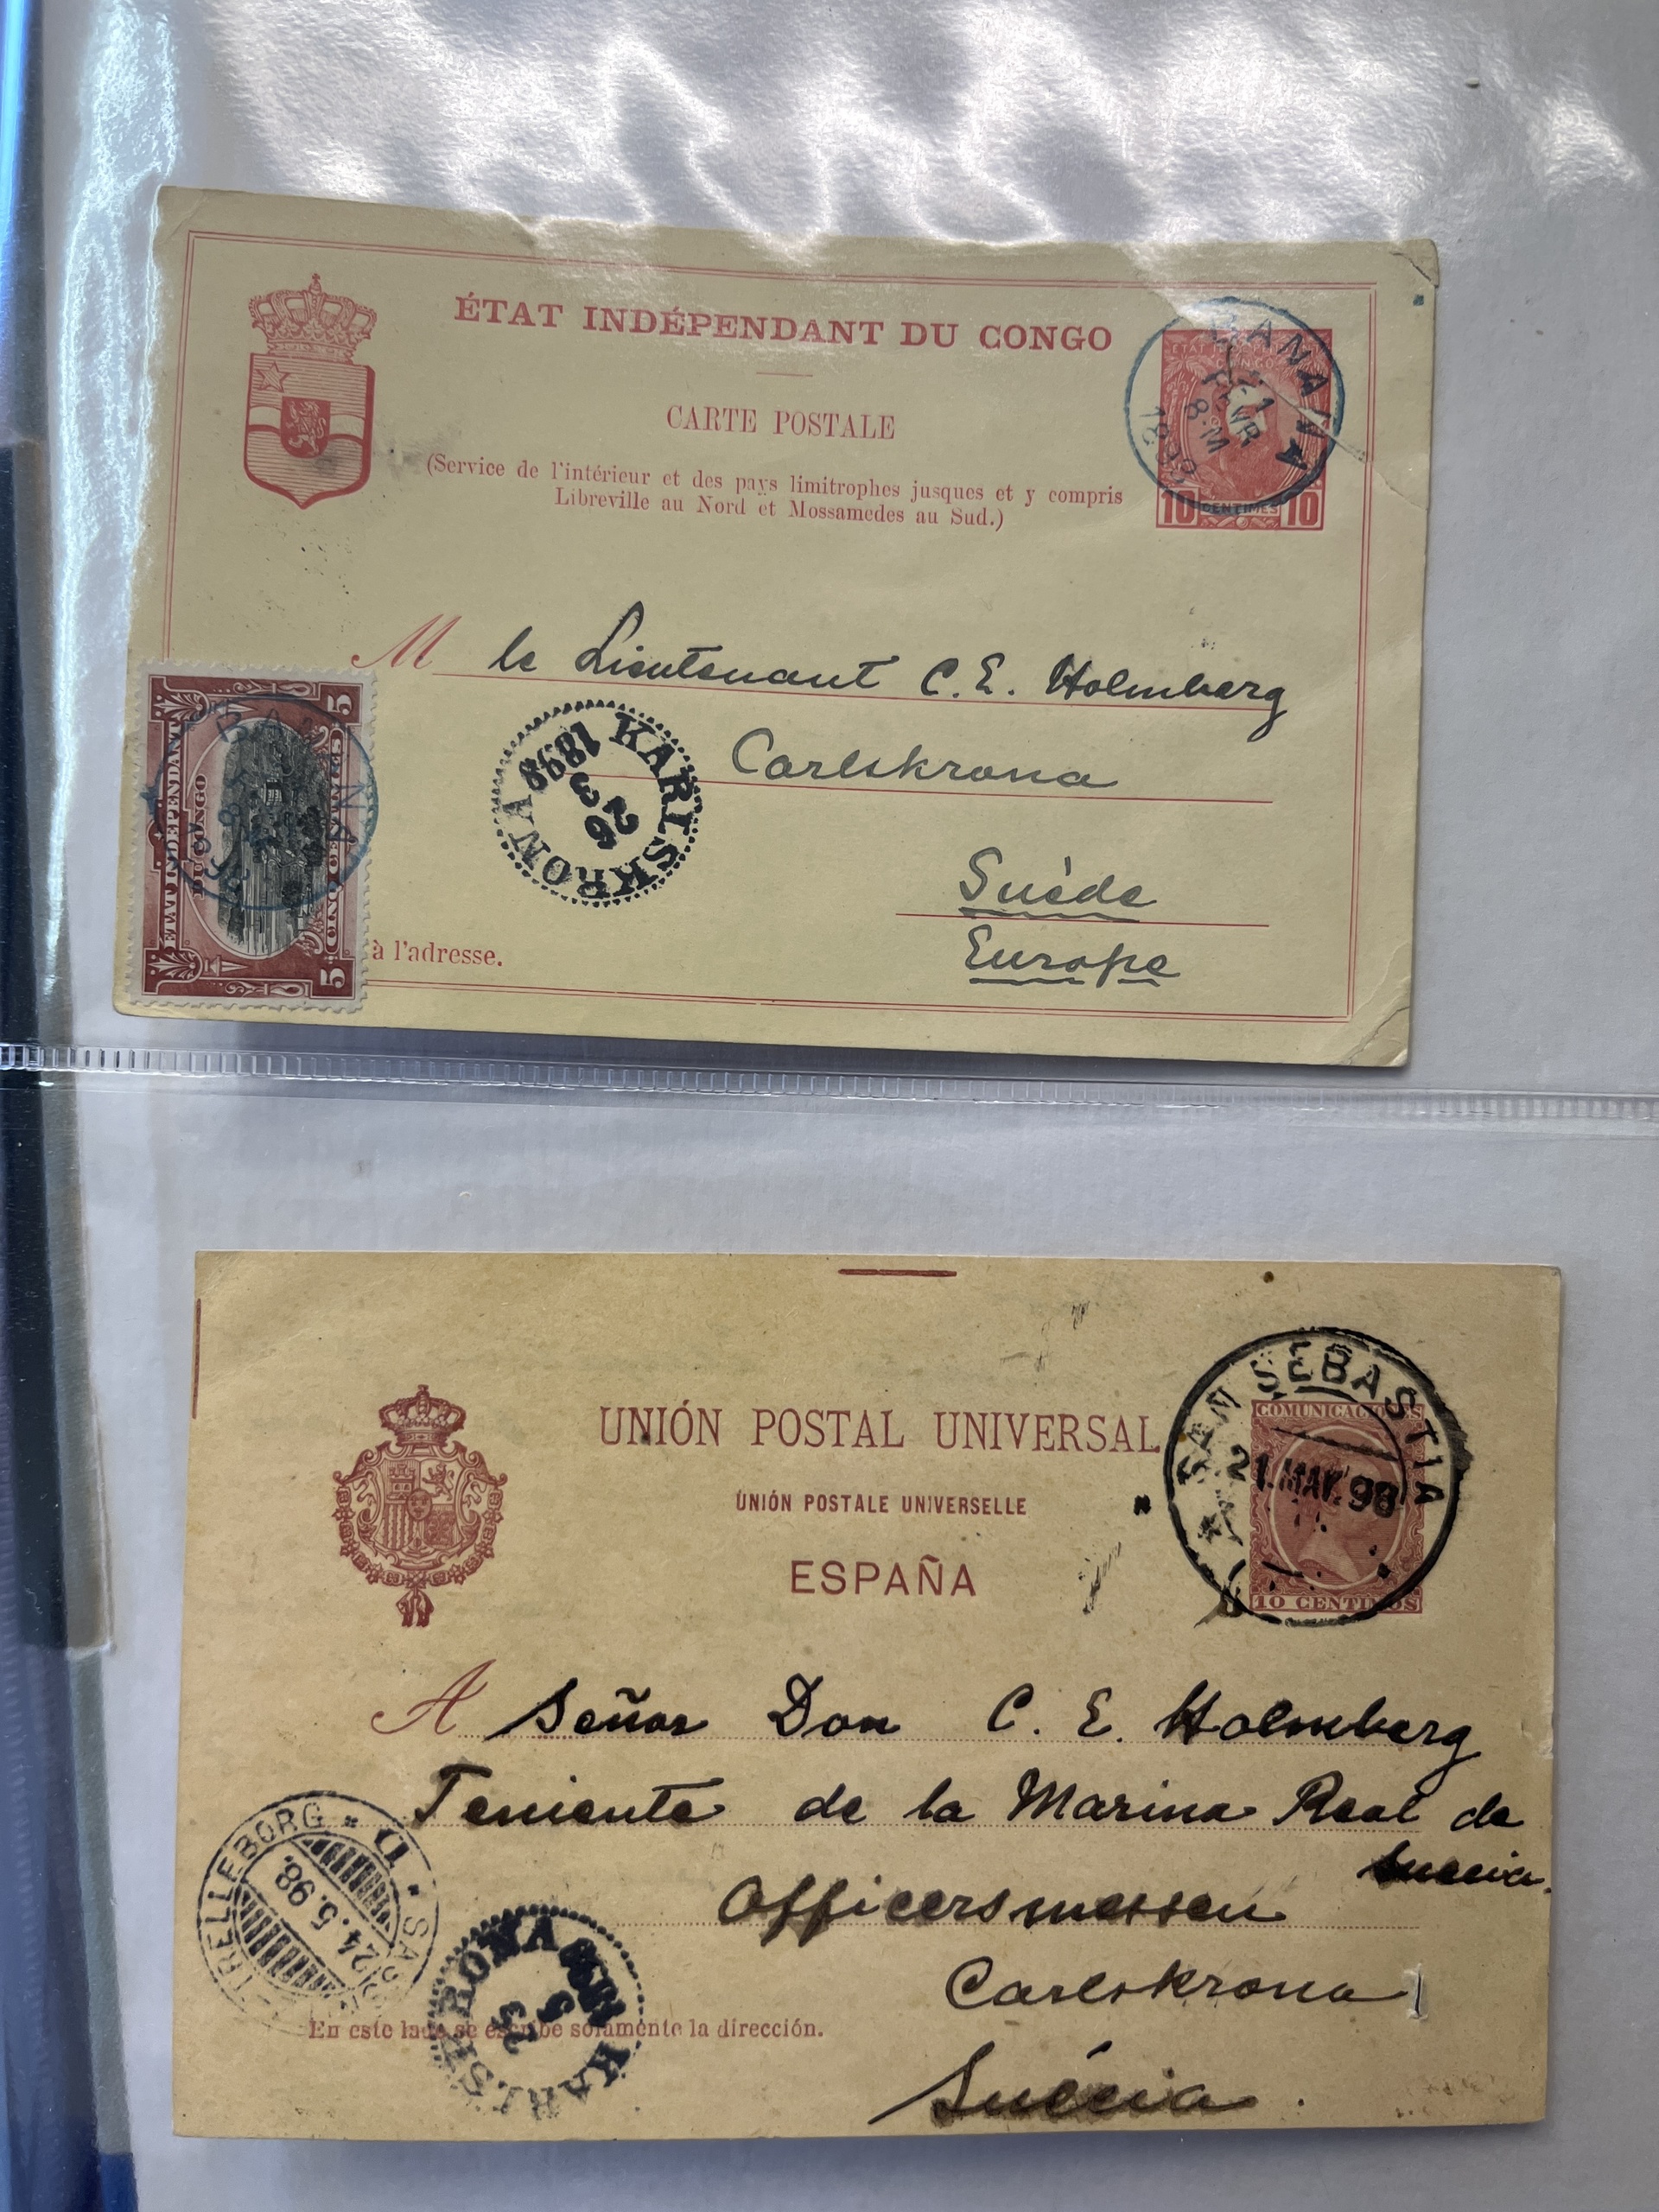 ÉTAT INDÉPENDANT DU CONGO
CARTE POSTALE
(Service de l'intérieur et des pays limitrophes jusques et y compris
Libreville au Nord et Mossamedes au Sud.)
BANANA
1 FEVR
8-M
10 CENTIMES 10
M le Lieutenant C. E. Holmberg
Carlskrona
Suède
Europe
KARLSKRONA
26 3
1898
ETAT INDEPENDANT
DU CONGO
CINQ CENTIMES
5 5
BANANA
à l'adresse.
UNIÓN POSTAL UNIVERSAL
UNIÓN POSTALE UNIVERSELLE
ESPAÑA
SAN SEBASTIA
21.MAY.98
COMUNICACIONES
10 CENTIMOS
A Señor Don C. E. Holmberg
Teniente de la Marina Real de
Suecia.
Officersmessen
Carlskrona
Suécia.
TRELLEBORG
24.5.98.
KARLSKRONA
5
1898
En este lado se escribe solamente la dirección.